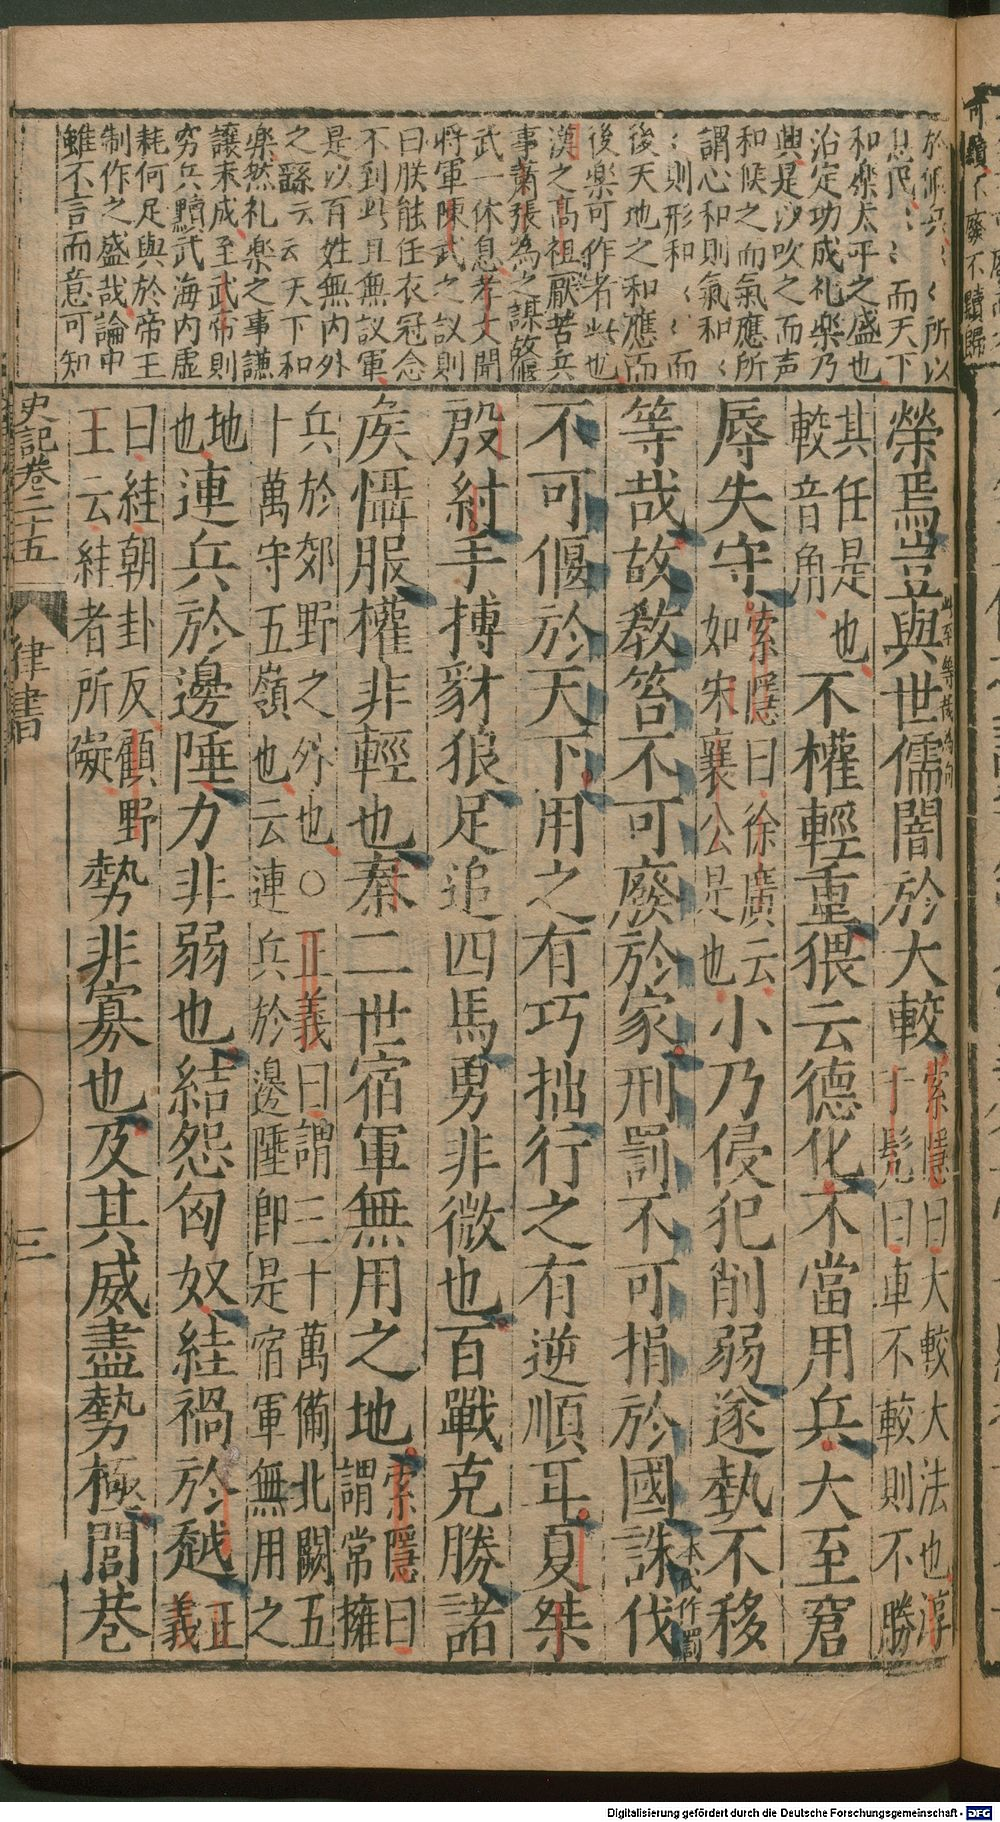 於偃兵〻〻所以
息民〻〻而天下
和樂太平之盛也
治定功成礼楽乃
興是沙吹之而声
和候之而氣應所
謂心和則氣和〻
〻則形和〻〻而
後天地之和應而
後楽可作者此也
漢之高祖厭苦兵
事蕭張為之謀故偃
武一休息孝文聞
將軍陳武之議則
曰朕能任衣冠念
不到此且無議軍
是以百姓無内外
之繇云云天下和
楽然礼楽之事謙
譲未成至武帝則
窮兵黷武海内虚
耗何足與於帝王
制作之盛哉論中
雖不言而意可知
榮焉豈與世儒闇於大較索隱曰大較大法也淳于髠曰車不較則不勝
此至等哉為句
其任是也較音角不權輕重猥云德化不當用兵大至窘
辱失守索隱曰徐廣云如宋襄公是也小乃侵犯削弱遂執不移
等哉故教笞不可廢於家刑罰不可捐於國誅伐
本或作罰
不可偃於天下用之有巧拙行之有逆順耳夏桀
殷紂手搏豺狼足追四馬勇非微也百戰克勝諸
矦懾服權非輕也秦二世宿軍無用之地索隱曰謂常擁
兵於郊野之外也○正義曰謂三十萬備北闕五十萬守五嶺也云連兵於邊陲即是宿軍無用之
地也連兵於邊陲力非弱也結怨匈奴絓禍於越正義
曰絓朝卦反顧野王云絓者所礙勢非寡也及其威盡勢極閭巷
史記卷二十五 律書 三
Digitalisierung gefördert durch die Deutsche Forschungsgemeinschaft - DFG